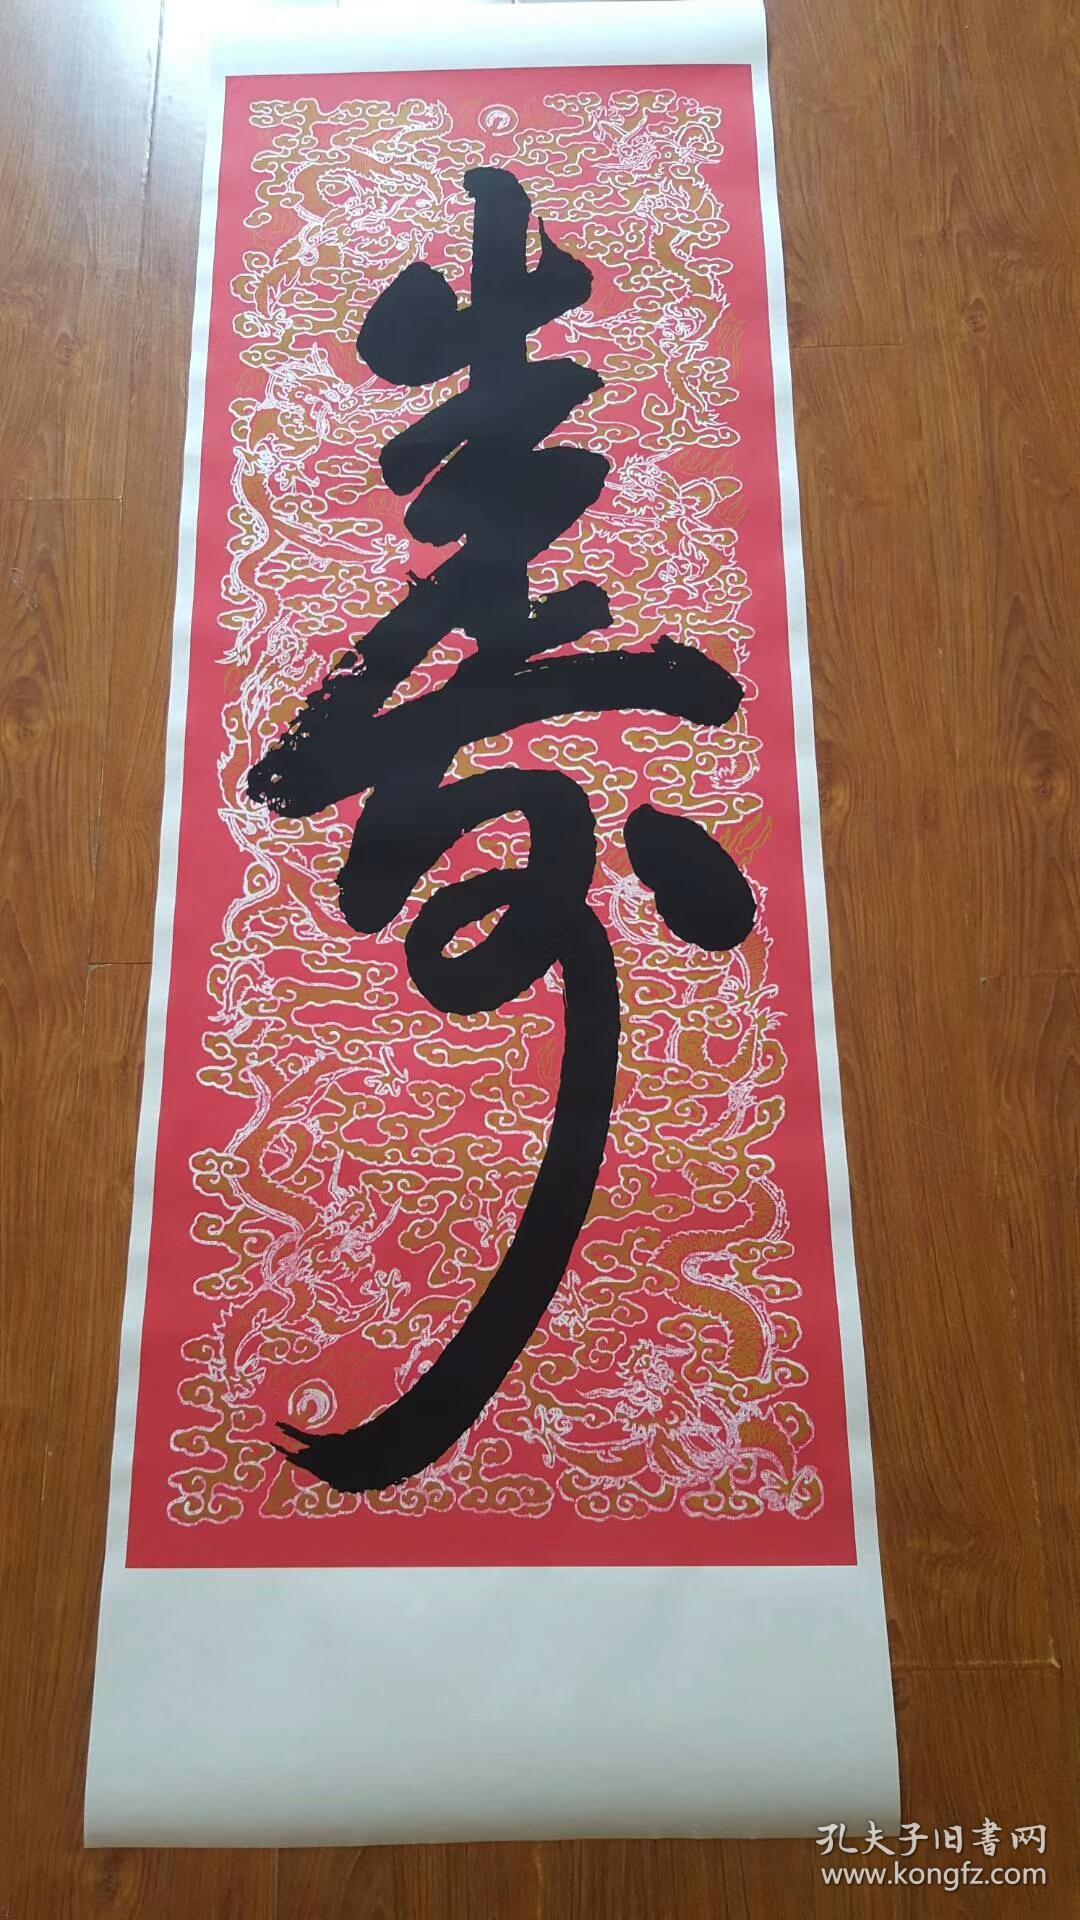 寿
孔夫子旧書网
www.kongfz.com